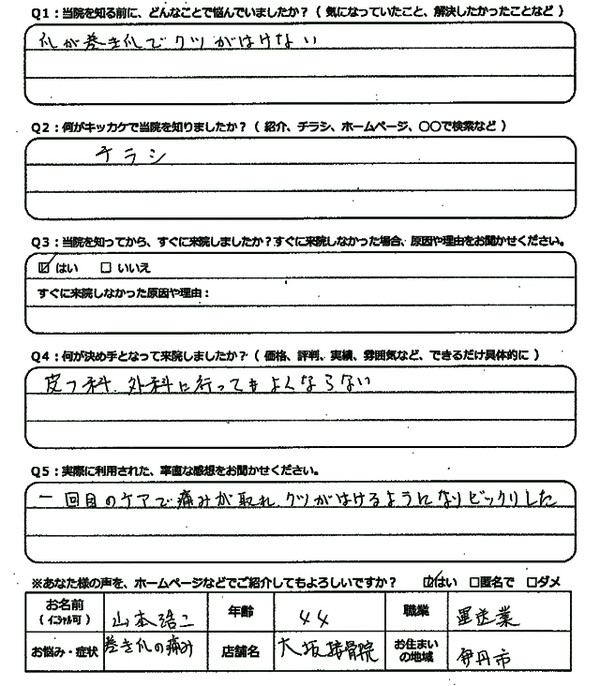 Q1:当院を知る前に、どんなことで悩んでいましたか?(気になっていたこと、解決したかったことなど)
爪が巻き爪でクツがはけない
Q2:何がキッカケで当院を知りましたか?(紹介、チラシ、ホームページ、〇〇で検索など)
チラシ
Q3:当院を知ってから、すぐに来院しましたか?すぐに来院しなかった場合、原因や理由をお聞かせください。
☑はい □いいえ
すぐに来院しなかった原因や理由:
Q4:何が決め手となって来院しましたか?(価格、評判、実績、雰囲気など、できるだけ具体的に)
皮フ科、外科に行ってもよくならない
Q5:実際に利用された、率直な感想をお聞かせください。
一回目のケアで痛みが取れ、クツがはけるようになりビックリした
※あなた様の声を、ホームページなどでご紹介してもよろしいですか? ☑はい □匿名で □ダメ
お名前(イニシャル可) 山本浩二 年齢 44 職業 運送業
お悩み・症状 巻き爪の痛み 店舗名 大坂接骨院 お住まいの地域 伊丹市